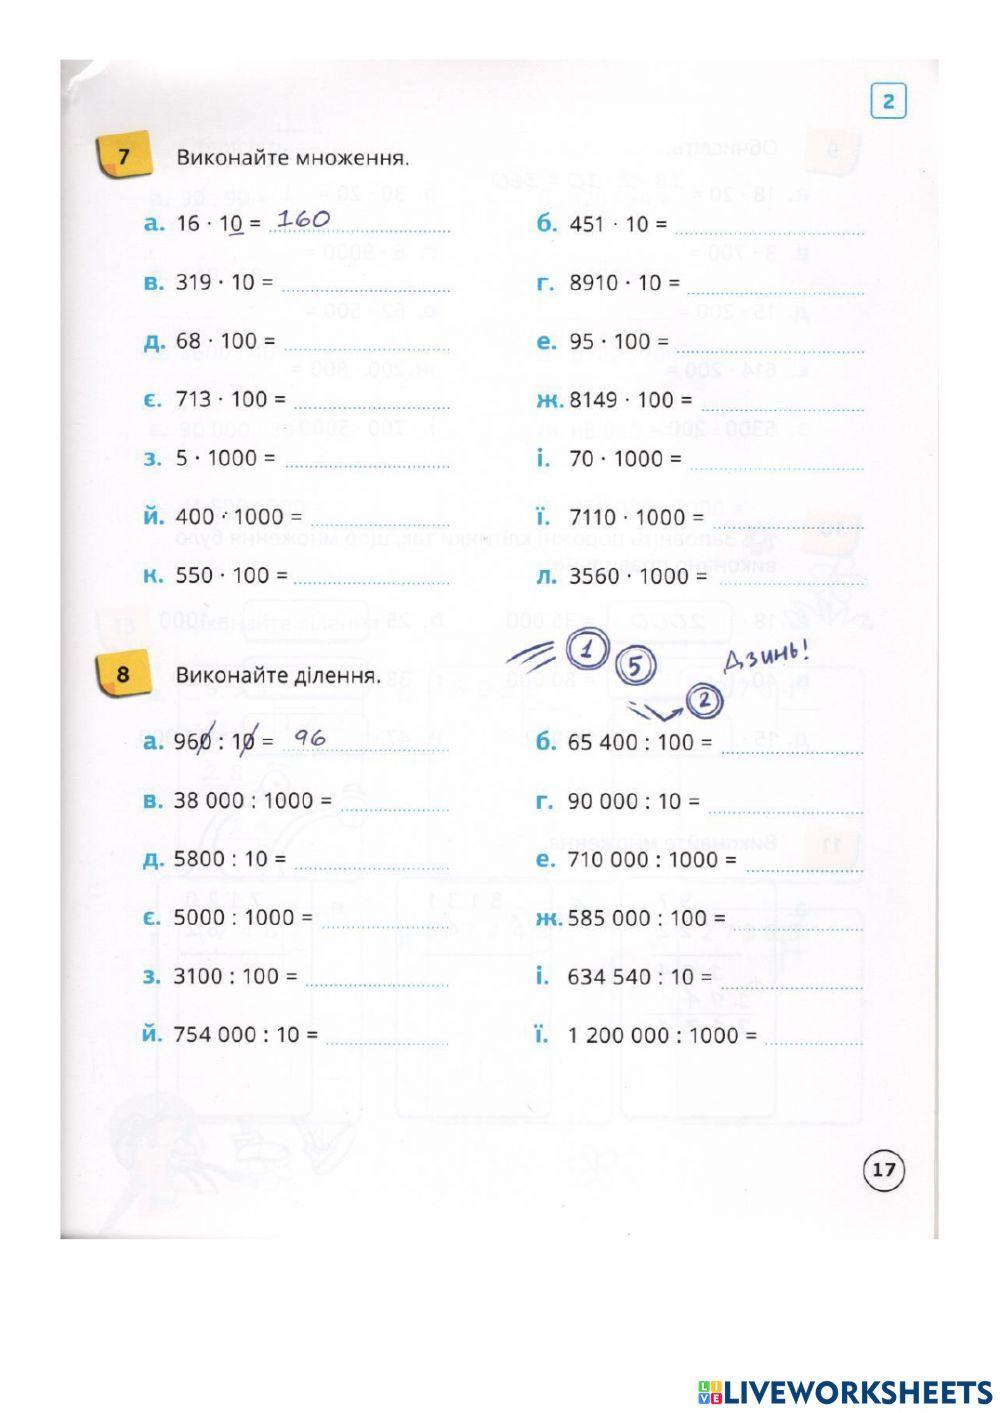 2
7 Виконайте множення.
а. 16 · 10 = 160 б. 451 · 10 =
в. 319 · 10 = г. 8910 · 10 =
д. 68 · 100 = е. 95 · 100 =
є. 713 · 100 = ж. 8149 · 100 =
з. 5 · 1000 = і. 70 · 1000 =
й. 400 · 1000 = ї. 7110 · 1000 =
к. 550 · 100 = л. 3560 · 1000 =
1 5 2 Дзинь!
8 Виконайте ділення.
а. 960 : 10 = 96 б. 65 400 : 100 =
в. 38 000 : 1000 = г. 90 000 : 10 =
д. 5800 : 10 = е. 710 000 : 1000 =
є. 5000 : 1000 = ж. 585 000 : 100 =
з. 3100 : 100 = і. 634 540 : 10 =
й. 754 000 : 10 = ї. 1 200 000 : 1000 =
17
LIVE LIVEWORKSHEETS